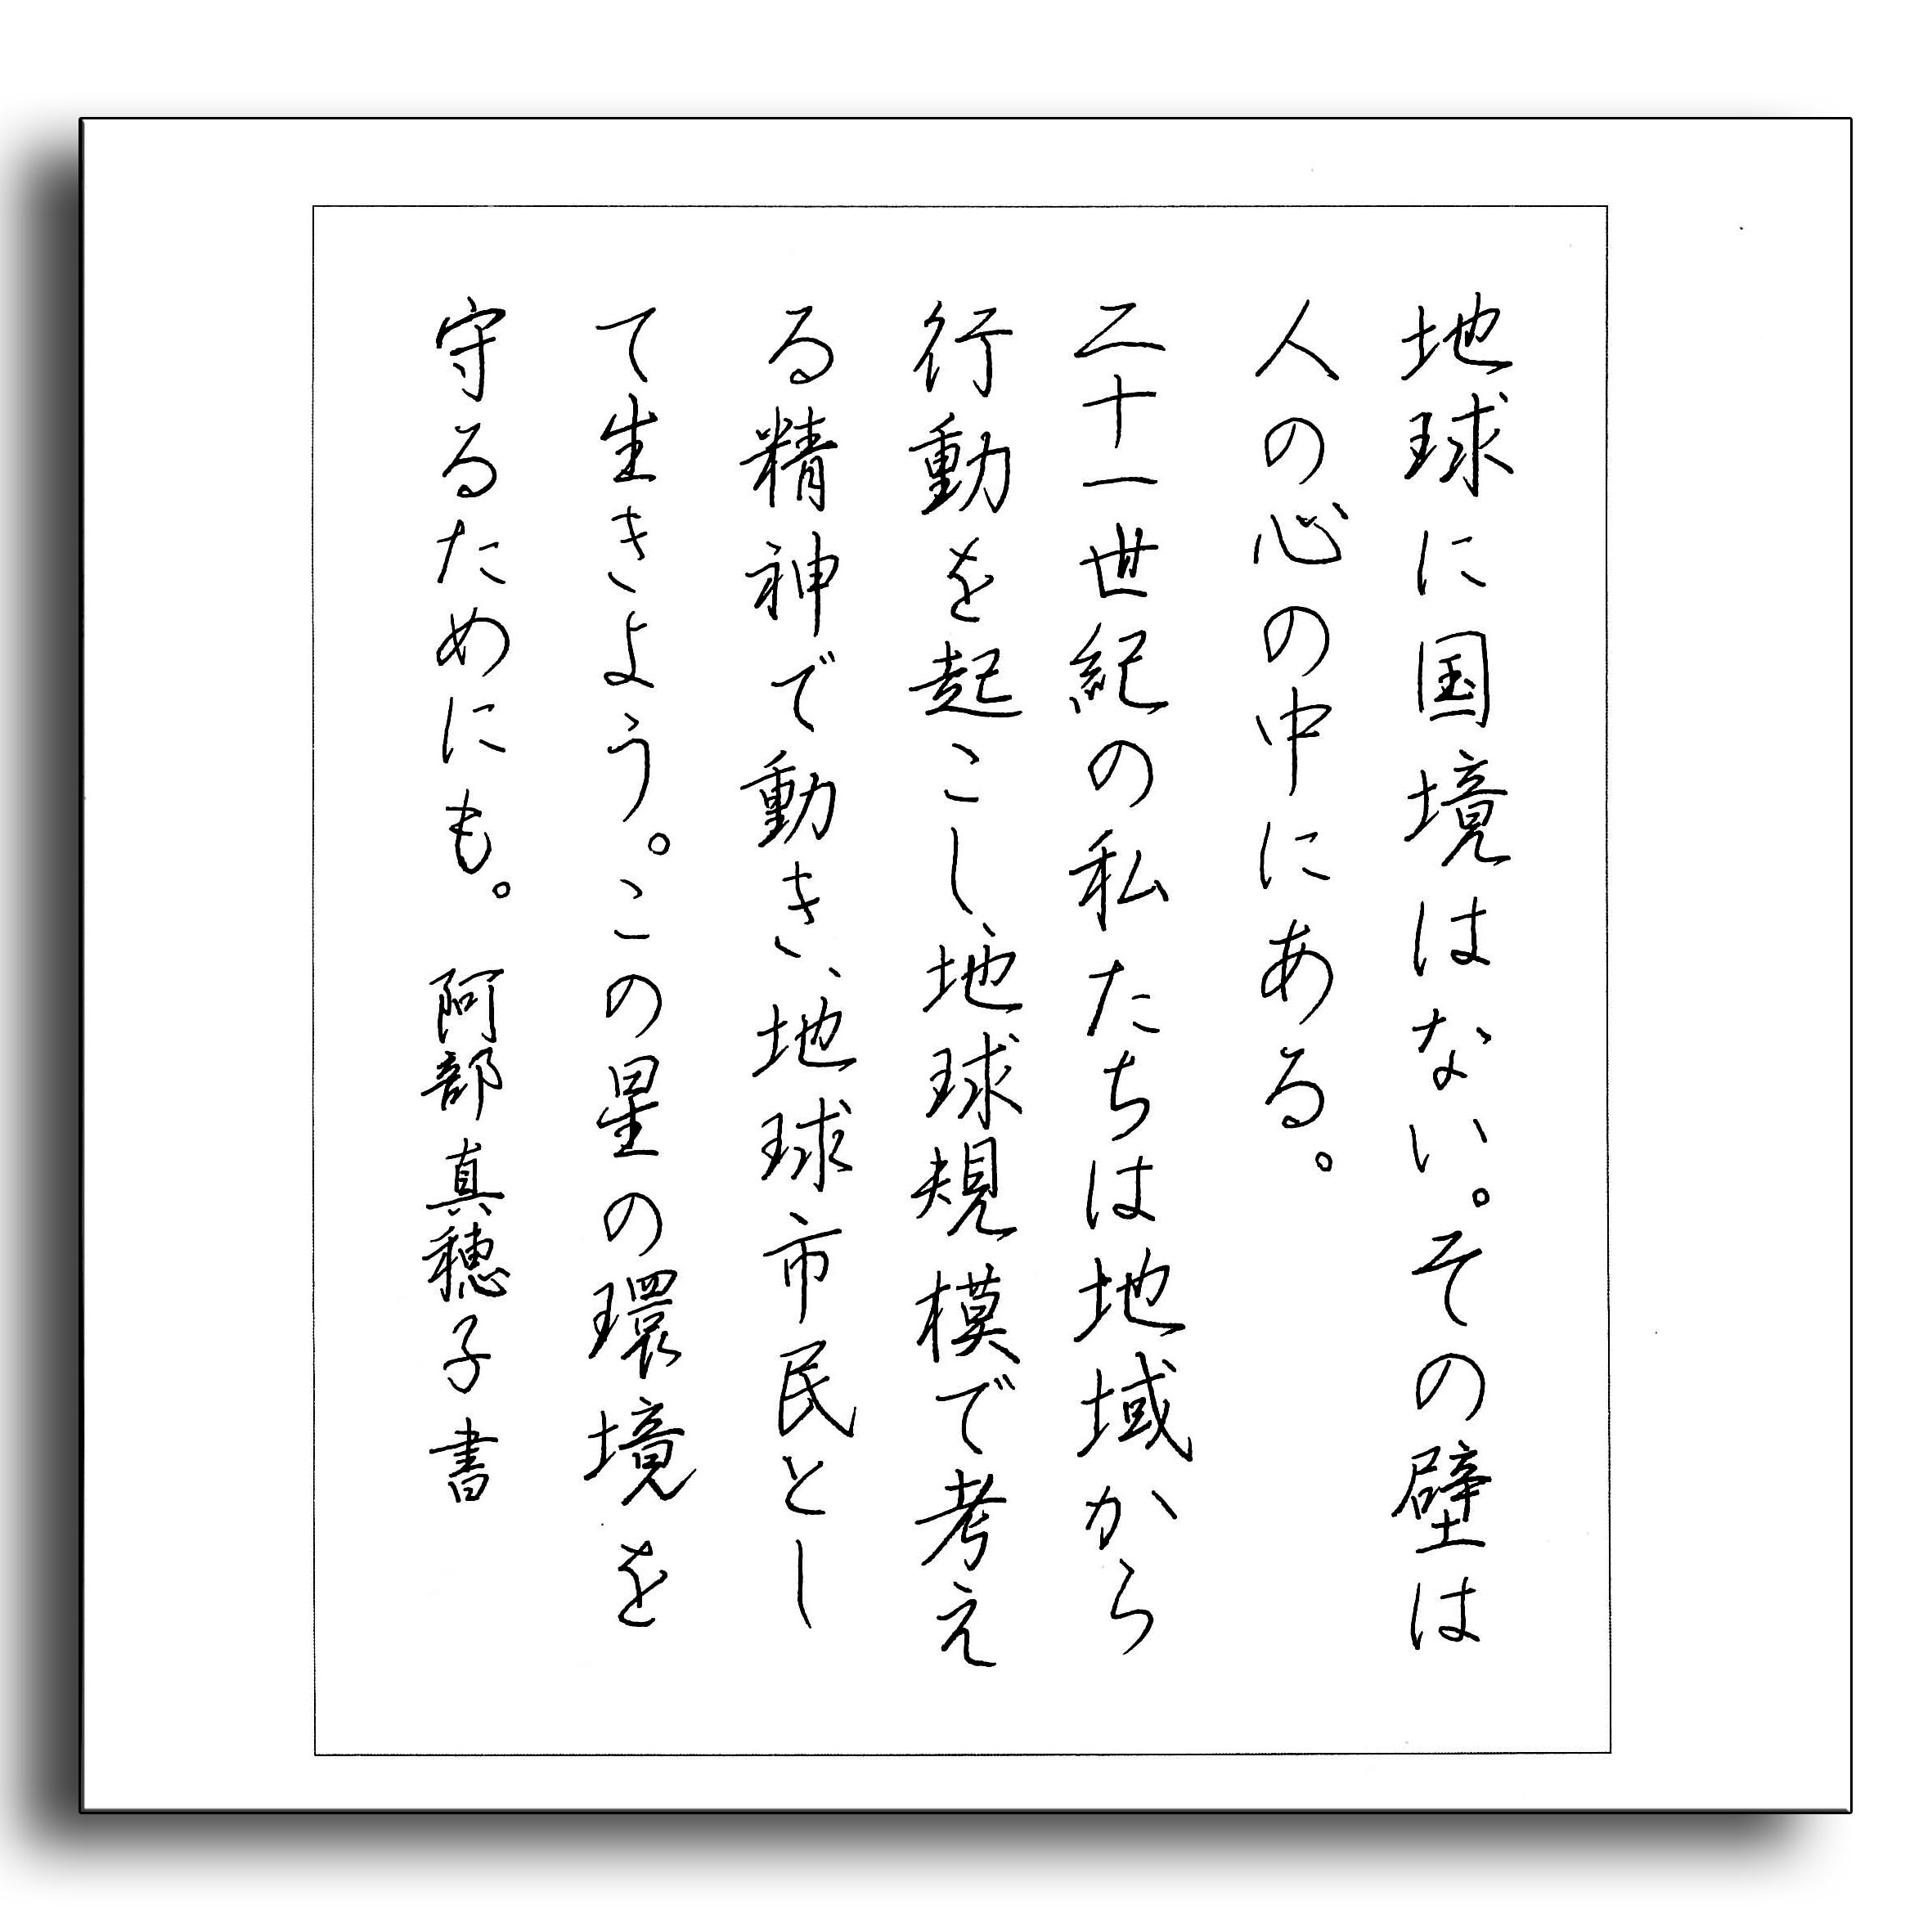 地球に国境はない。その壁は
人の心の中にある。
二十一世紀の私たちは地域から
行動を起こし、地球規模で考え
る精神で動き、地球市民とし
て生きよう。この星の環境を
守るためにも。 阿部 真穂子 書